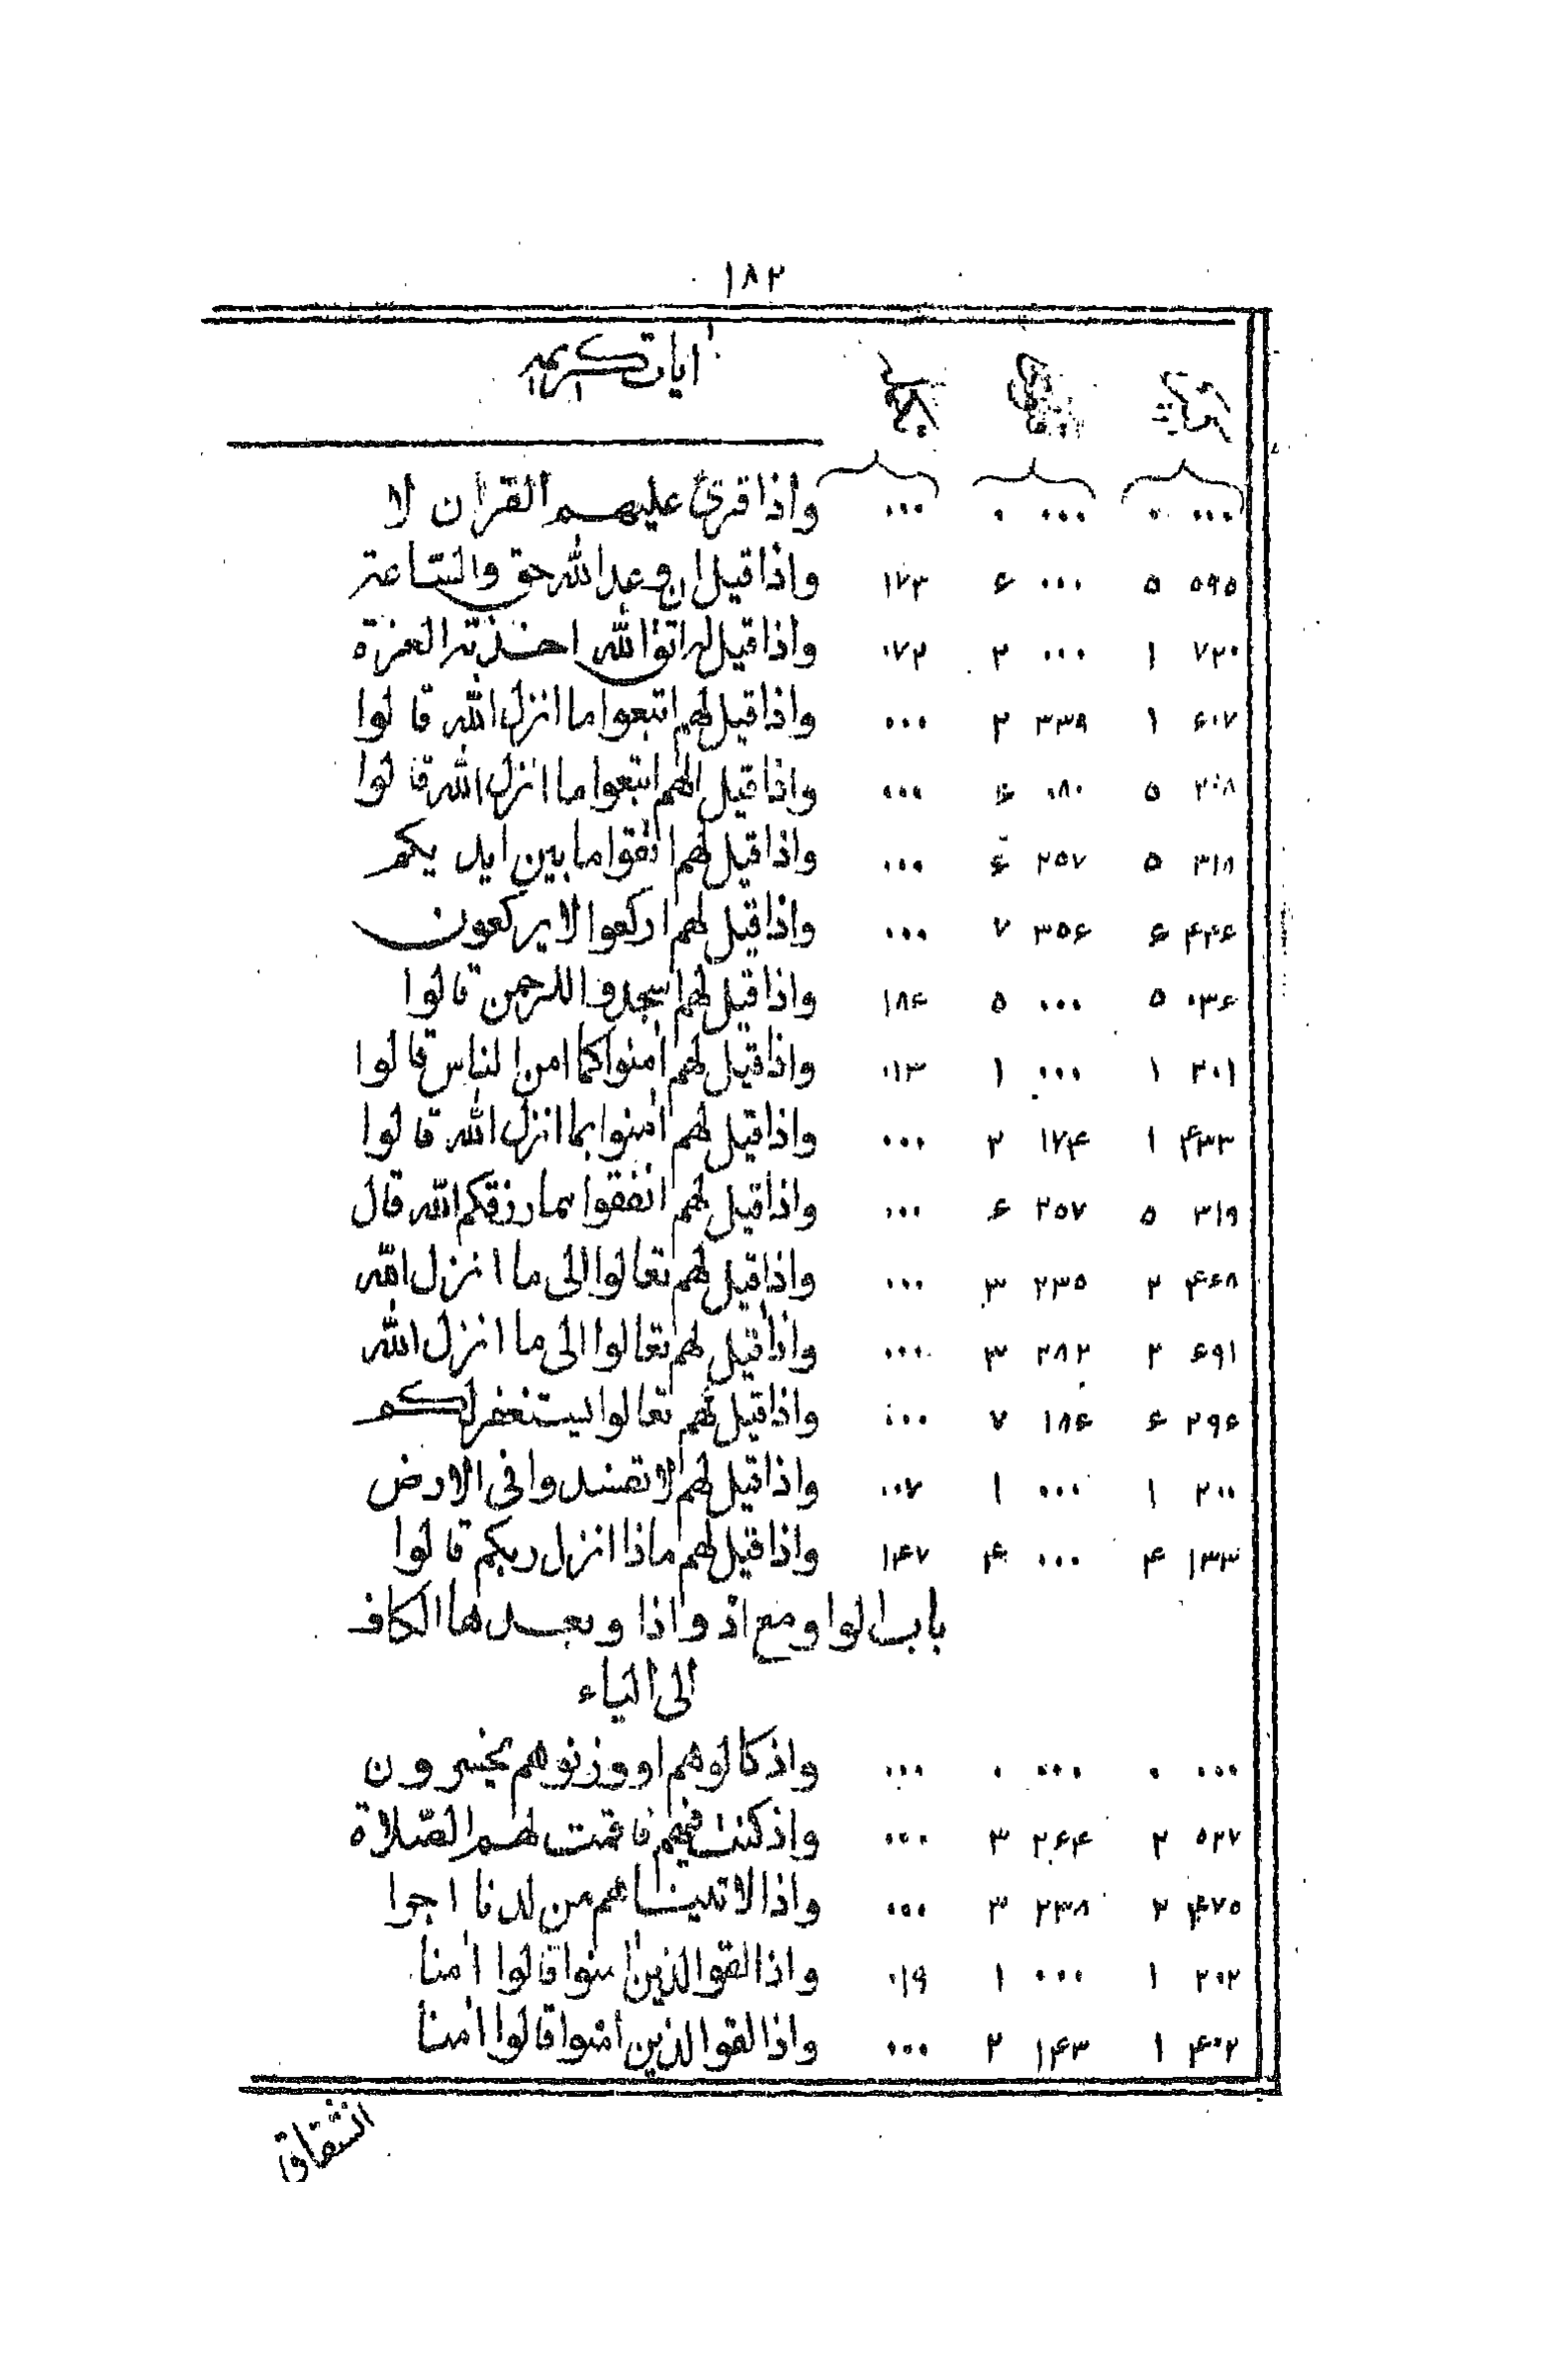 ١٨٢
ايات كريمه
... ٠ ... ٠ ... واذا قرئ عليهم القران لا
٥٩٥ ٥ ... ۶ ١٧٣ واذا قيل ان وعد الله حق والساعة
٧٢٠ ١ ... ٢ ٠٧٢ واذا قيل له اتق الله اخذته العزة
۶٠٧ ١ ٣٣٩ ٢ ... واذا قيل لهم اتبعوا ما انزل الله قالوا
٢٠٨ ٥ ٠٨٠ ۶ ... واذا قيل لهم اتبعوا ما انزل الله قالوا
٣١٨ ٥ ٢٥٧ ۶ ... واذا قيل لهم اتقوا ما بين ايديكم
۴۴۶ ۶ ٣٥۶ ٧ ... واذا قيل لهم اركعوا لا يركعون
٠٣۶ ٥ ... ٥ ١٨۶ واذا قيل لهم اسجدوا للرحمن قالوا
٢٠١ ١ ... ١ ٠١٣ واذا قيل لهم امنوا كما امن الناس قالوا
۴٣٣ ١ ١٧۴ ٢ ... واذا قيل لهم امنوا بما انزل الله قالوا
٣١٩ ٥ ٢٥٧ ۶ ... واذا قيل لهم انفقوا مما رزقكم الله قال
۴۶٨ ٢ ٢٣٥ ٣ ... واذا قيل لهم تعالوا الى ما انزل الله
۶٩١ ٢ ٢٨٢ ٣ ... واذا قيل لهم تعالوا الى ما انزل الله
٢٩۶ ۶ ١٨۶ ٧ ... واذا قيل لهم تعالوا يستغفر لكم
٢٠٠ ١ ... ١ ٠٠٧ واذا قيل لهم لا تفسدوا فى الارض
١٣٣ ۴ ... ۴ ١۴٧ واذا قيل لهم ماذا انزل ربكم قالوا
باب الواو مع اذ واذا وبعدها الكاف
الى الياء
... ٠ ... ٠ ... واذ كالوهم او وزنوهم يخسرون
٥٢٧ ٢ ٢۶۴ ٣ ... واذ كنت فيهم فاقمت لهم الصّلاة
۴٧٥ ٢ ٢٣٨ ٣ ... واذا لاتيناهم من لدنا اجرا
٢٠٢ ١ ... ١ ٠١٩ واذا لقوا الذين امنوا قالوا امنا
۴٠٢ ١ ١۴٣ ٢ ... واذا لقوا الذين امنوا قالوا امنا
انشقاق